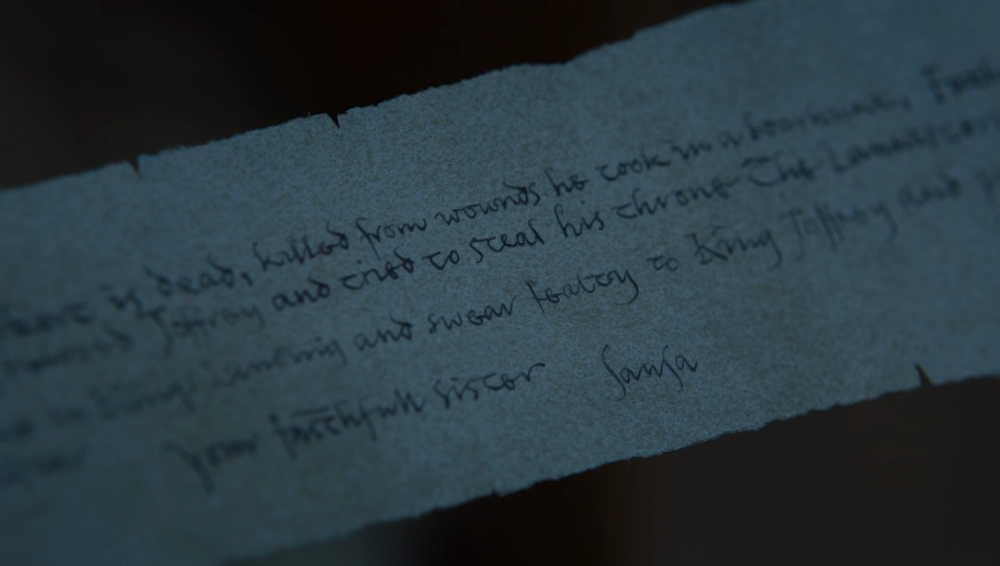 is dead, killed from wounds he took in a boar hunt, Father
Joffrey and tried to steal his throne The Lannisters
Kings Landing and swear fealty to King Joffrey and
your faithfull sister Sansa